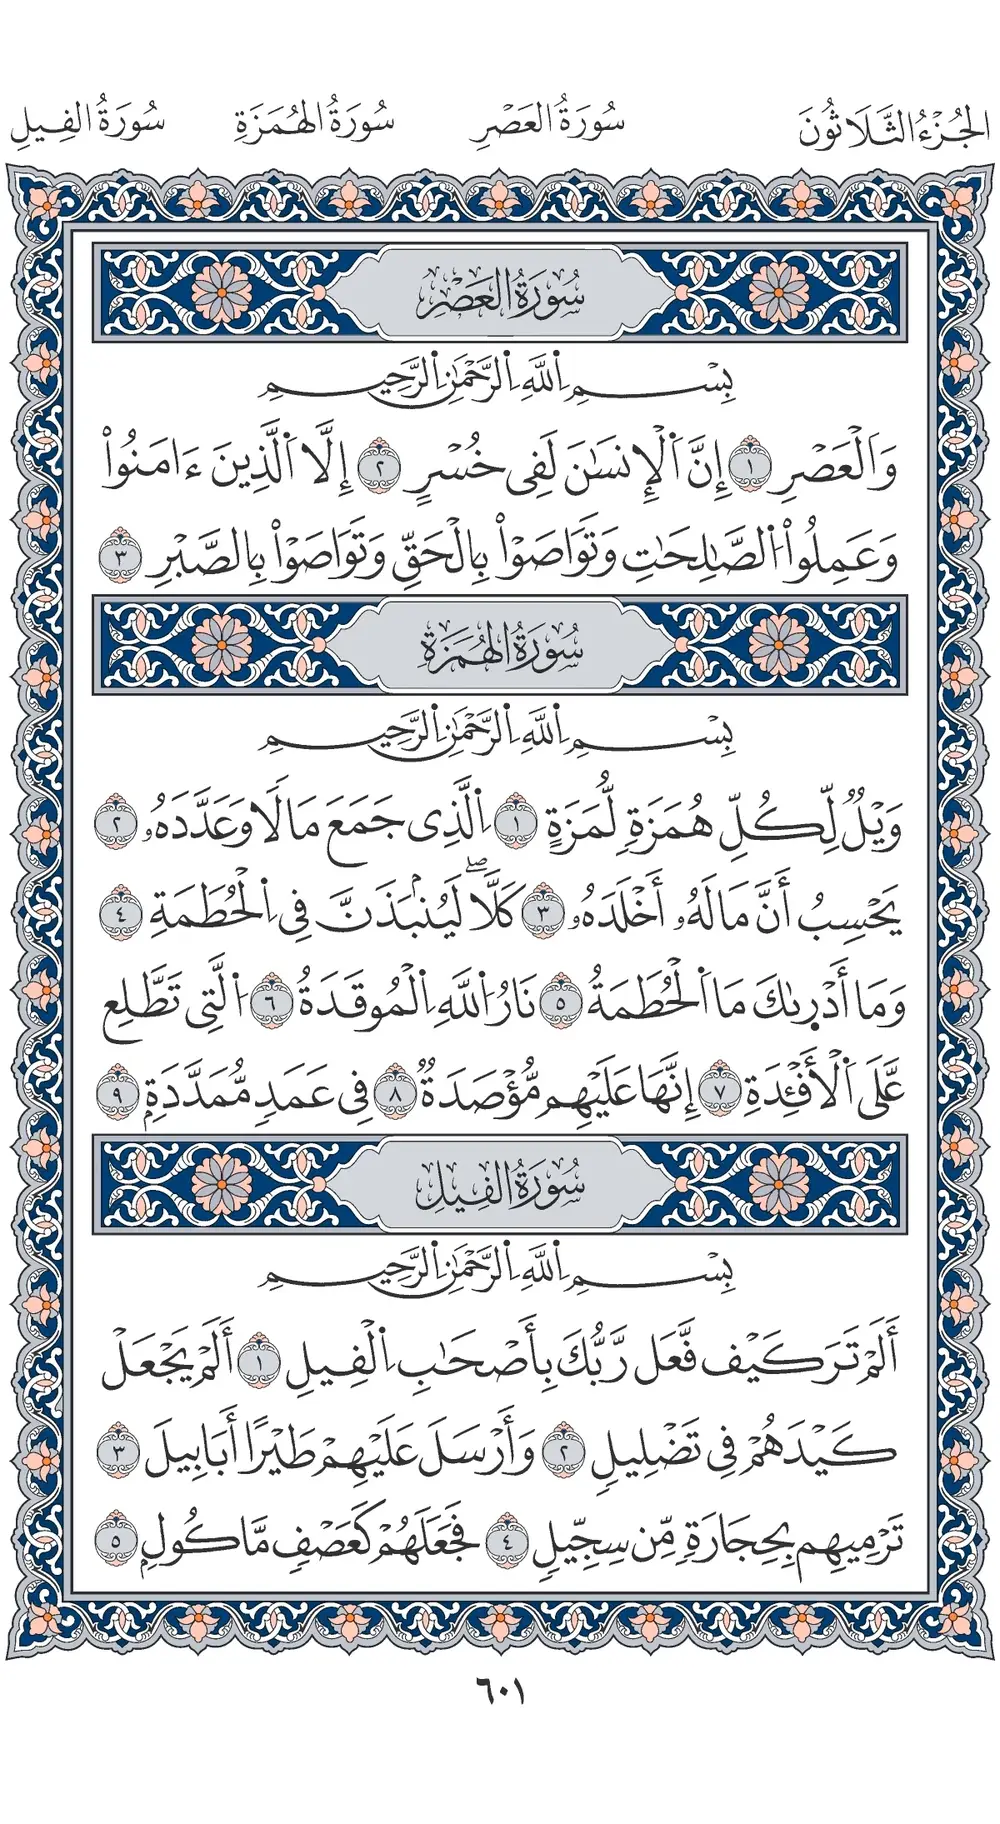 الجُزْءُ الثَّلَاثُونَ سُورَةُ العَصْرِ سُورَةُ الهُمَزَةِ سُورَةُ الفِيلِ
سُورَةُ العَصْرِ
بِسْمِ اِ۬للَّهِ اِ۬لرَّحْمَٰنِ اِ۬لرَّحِيمِ
وَالْعَصْرِ ١ إِنَّ اَ۬لْإِنسَٰنَ لَفِى خُسْرٍ ٢ إِلَّا اَ۬لَّذِينَ ءَامَنُواْ
وَعَمِلُواْ اُ۬لصَّٰلِحَٰتِ وَتَوَاصَوْاْ بِالْحَقِّ وَتَوَاصَوْاْ بِالصَّبْرِ ٣
سُورَةُ الهُمَزَةِ
بِسْمِ اِ۬للَّهِ اِ۬لرَّحْمَٰنِ اِ۬لرَّحِيمِ
وَيْلٌ لِّكُلِّ هُمَزَةٍ لُّمَزَةٍ ١ اِ۬لَّذِى جَمَعَ مَالًا وَعَدَّدَهُۥ ٢
يَحْسِبُ أَنَّ مَالَهُۥ أَخْلَدَهُۥ ٣ كَلَّاۖ لَيُنۢبَذَنَّ فِى اِ۬لْحُطَمَةِ ٤
وَمَا أَدْر۪ىٰكَ مَا اَ۬لْحُطَمَةُ ٥ نَارُ اُ۬للَّهِ اِ۬لْمُوقَدَةُ ٦ اُ۬لَّتِى تَطَّلِع
عَّلَى اَ۬لْأَفْـِٔدَةِ ٧ إِنَّهَا عَلَيْهِم مُّؤْصَدَةٌ ٨ فِى عَمَدٍ مُّمَدَّدَةٍ ٩
سُورَةُ الفِيلِ
بِسْمِ اِ۬للَّهِ اِ۬لرَّحْمَٰنِ اِ۬لرَّحِيمِ
أَلَمْ تَرَ كَيْف فَّعَل رَّبُّكَ بِأَصْحَٰبِ اِ۬لْفِيلِ ١ أَلَمْ يَجْعَلْ
كَيْدَهُمْ فِى تَضْلِيلٍ ٢ وَأَرْسَلَ عَلَيْهِمْ طَيْرًا أَبَابِيلَ ٣
تَرْمِيهِم بِحِجَارَةٍ مِّن سِجِّيلٍ ٤ فَجَعَلَهُمْ كَعَصْفٍ مَّاكُولٍ ٥
٦٠١